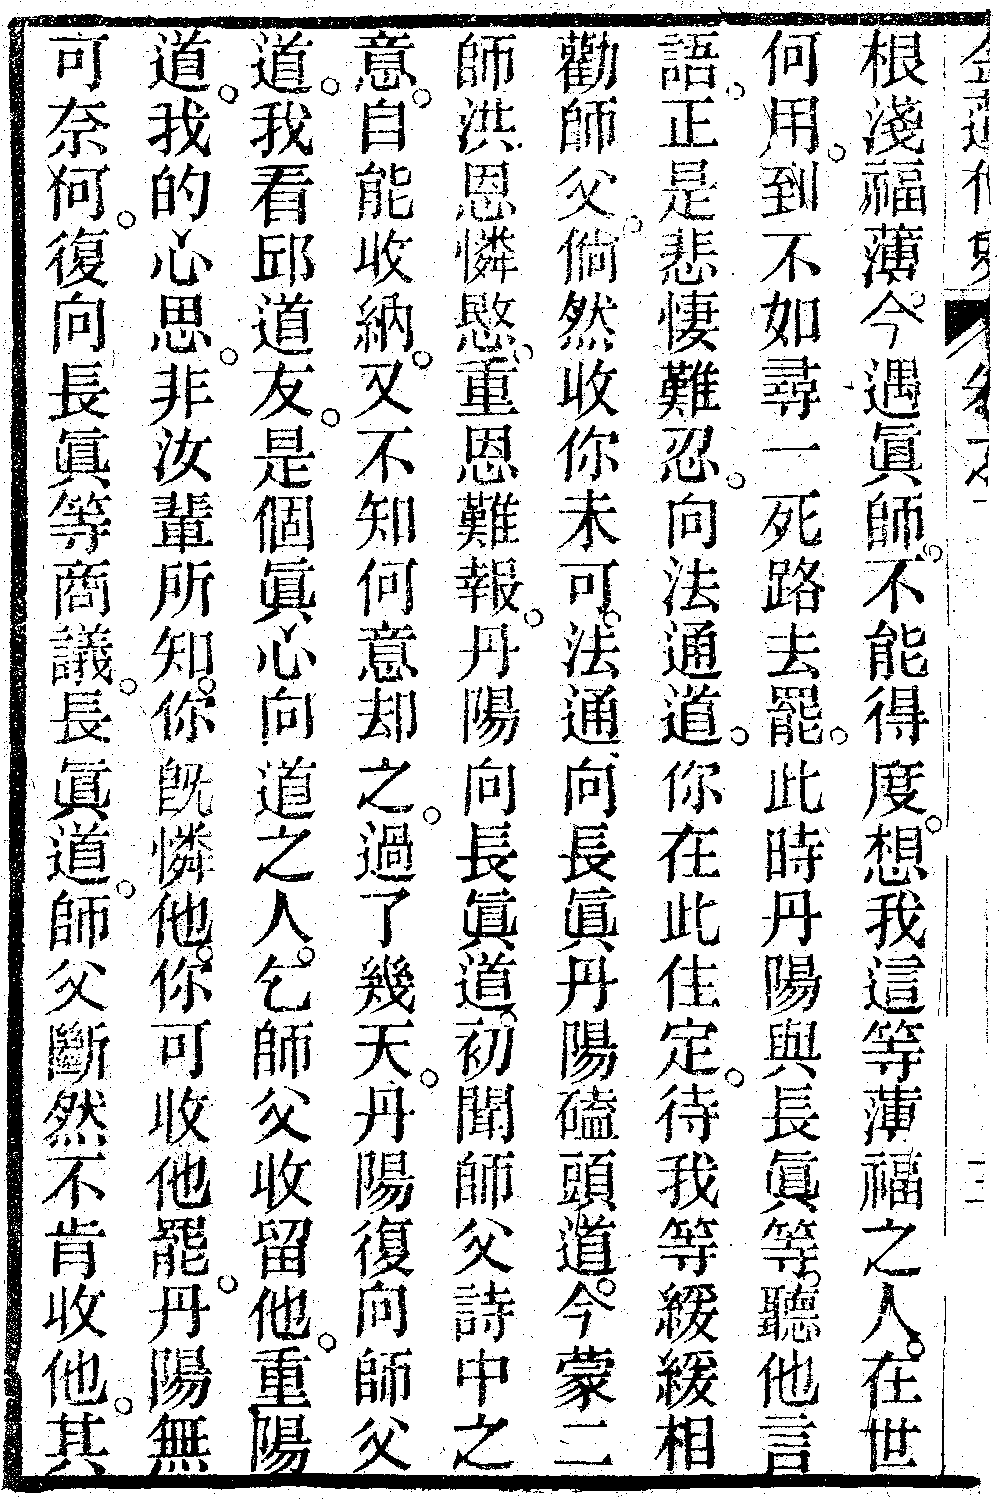 根淺福薄。今遇眞師。不能得度。想我這等薄福之人。在世
何用。到不如尋一死路去罷。此時丹陽與長眞等。聽他言
語。正是悲悽難忍。向法通道。你在此住定。待我等緩緩相
勸師父。倘然收你未可。法通向長眞丹陽磕頭道。今蒙二
師洪恩憐愍。重恩難報。丹陽向長眞道。初聞師父詩中之
意。自能收納。又不知何意却之。過了幾天。丹陽復向師父
道。我看邱道友。是個眞心向道之人。乞師父收留他。重陽
道。我的心思。非汝輩所知。你旣憐他。你可收他罷。丹陽無
可奈何。復向長眞等商議。長眞道。師父斷然不肯收他。其